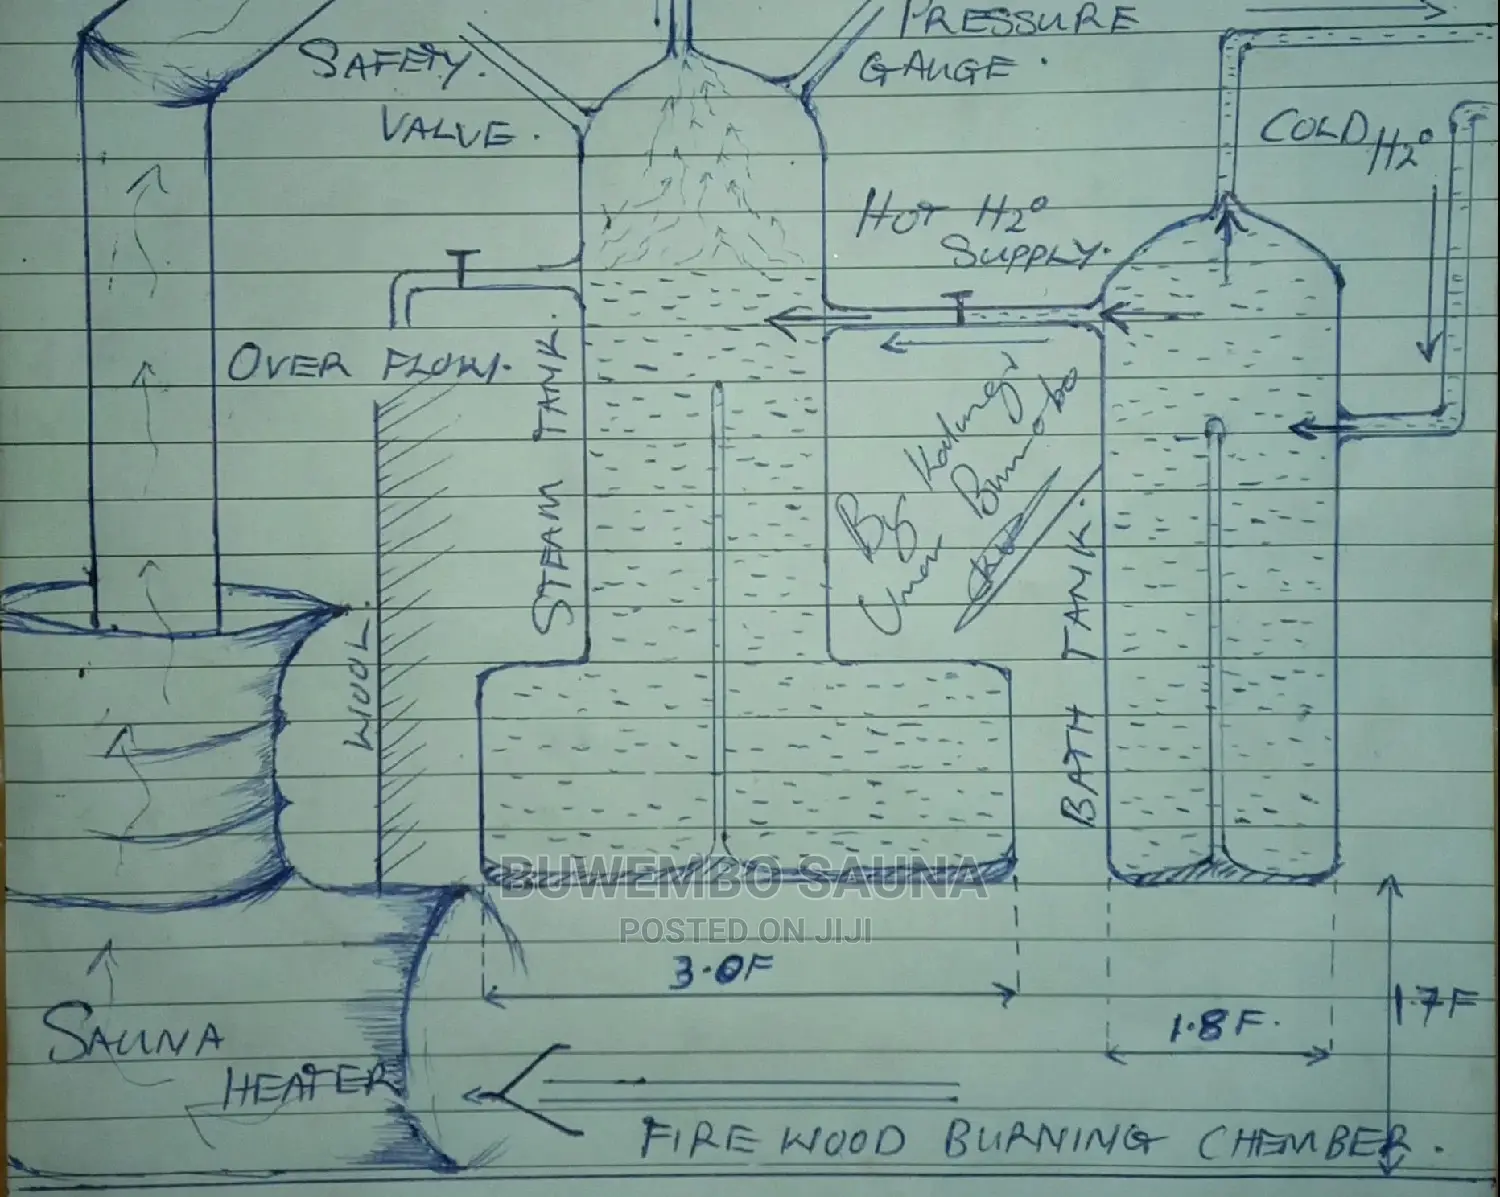 PRESSURE
GAUGE.
SAFETY.
VALVE.
COLD H2O
HOT H2O
SUPPLY.
OVER FLOW.
STEAM TANK.
WOOL.
BATH TANK.
By
BUWEMBO SAUNA
POSTED ON JIJI
3.0F
1.8F.
1.7F
SAUNA
HEATER
FIRE WOOD BURNING CHEMBER.